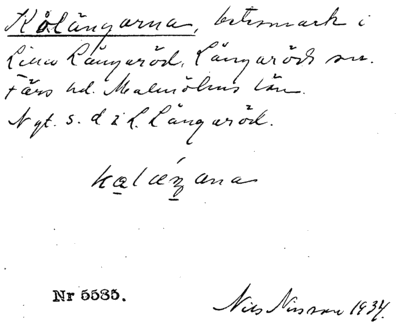 Kålängarna, betesmark i
Lilla Långaröd, Långaröds sn.
Färs hd. Malmöhus län.
Ngt. s. d i L. Långaröd.
Nr 5585.
Nils Nilsson 1934.